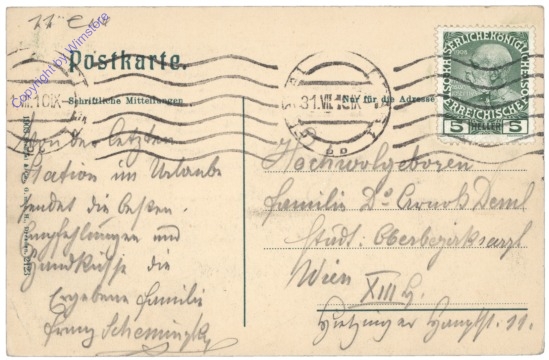 11 e
Copyright by Wimstore
Postkarte.
Schriftliche Mitteilungen
Nur für die Adresse
31.VII.10 IX
KAISERLICHE KÖNIGLICHE
ÖSTERREICHISCHE
5 HELLER 5
Von der letzten
Station im Urlaube
sendet die besten
Empfehlungen und
Handküsse die
Ergebene Familie
Franz
Hochwolgeboren
Familie Dr Arnold Deml
städt: Oberbezirksarzt
Wien
XIII/4.
Hietzinger Hauptstr. 11.